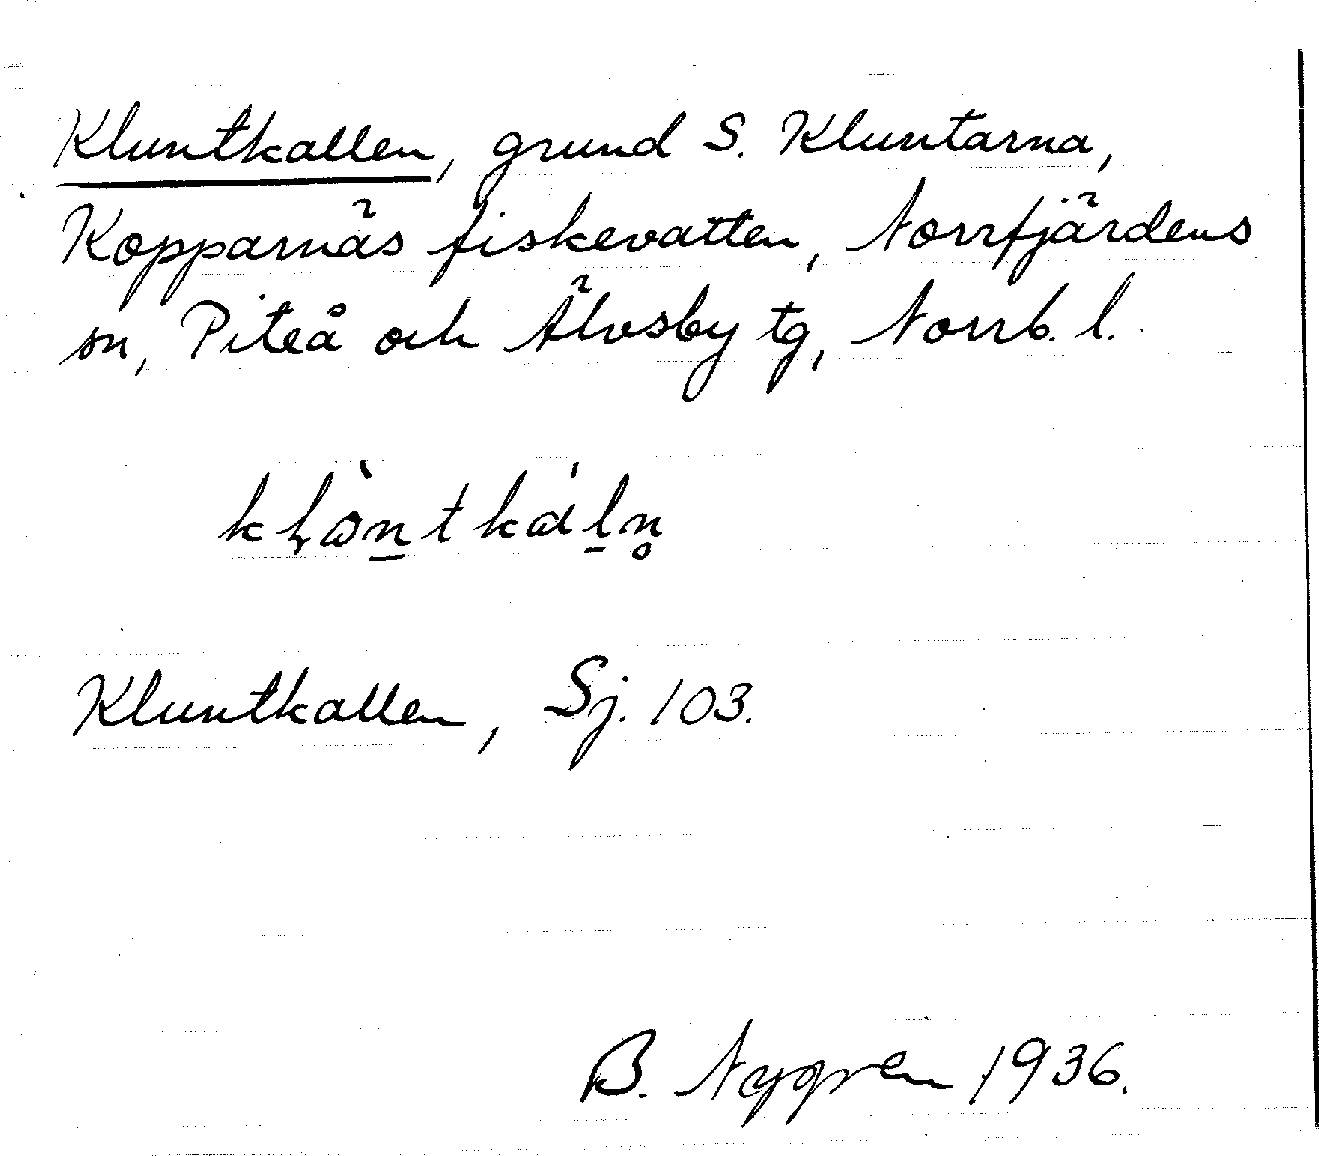 Kluntkallen, grund S. Kluntarna,
Kopparnäs fiskevatten, Norrfjärdens
sn, Piteå och Älvsby tg, Norrb. l.
Kluntkallen, Sj. 103.
B. Nygren 1936.